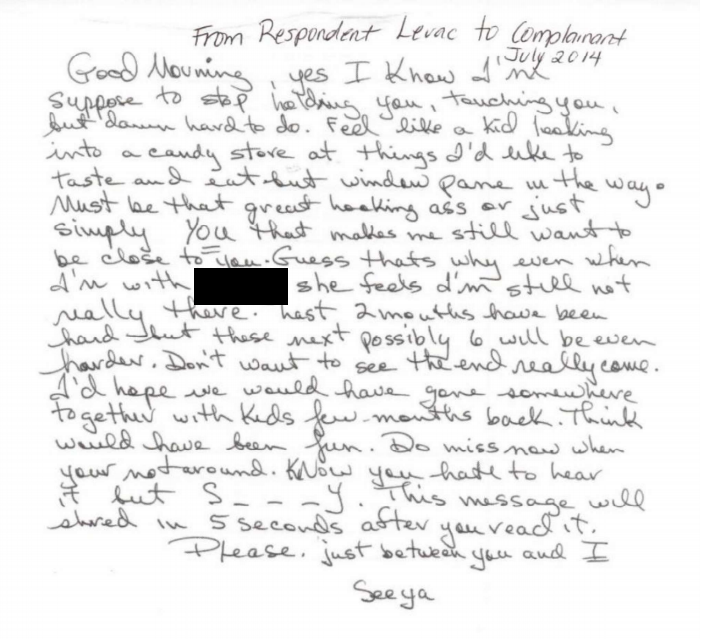 From Respondent Levac to Complainant
July 2014
Good Mourning, yes I Know I'm
suppose to stop holding you, touching you,
but damn hard to do. Feel like a kid looking
into a candy store at things I'd like to
taste and eat but window pane in the way.
Must be that great looking ass or just
simply You that makes me still want to
be close to you. Guess thats why even when
I'm with she feels I'm still not
really there. Last 2 months have been
hard but these next possibly 6 will be even
harder. Don't want to see the end really come.
I'd hope we would have gone somewhere
together with Kids few months back. Think
would have been fun. Do miss now when
your not around. KNow you hate to hear
it but S _ _ _ y. This message will
shred in 5 seconds after you read it.
Please. just between you and I
See ya